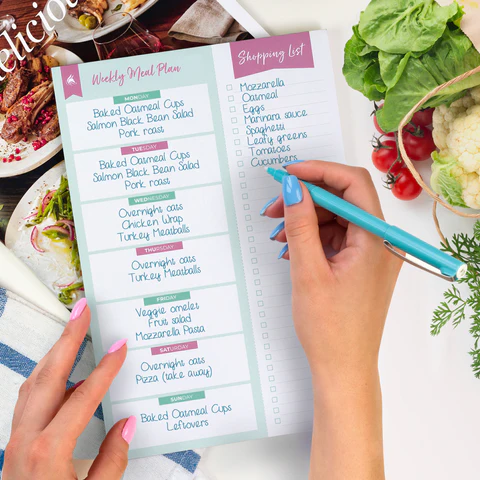 delicious
Weekly Meal Plan
MONDAY
Baked Oatmeal Cups
Salmon Black Bean Salad
Pork roast
TUESDAY
Baked Oatmeal Cups
Salmon Black Bean Salad
Pork roast
WEDNESDAY
Overnight oats
Chicken Wrap
Turkey Meatballs
THURSDAY
Overnight oats
Turkey Meatballs
FRIDAY
Veggie omelet
Fruit salad
Mozzarella Pasta
SATURDAY
Overnight oats
Pizza (take away)
SUNDAY
Baked Oatmeal Cups
Leftovers
Shopping List
Mozzarella
Oatmeal
Eggs
Marinara sauce
Spaghetti
Leafy greens
Tomatoes
Cucumbers